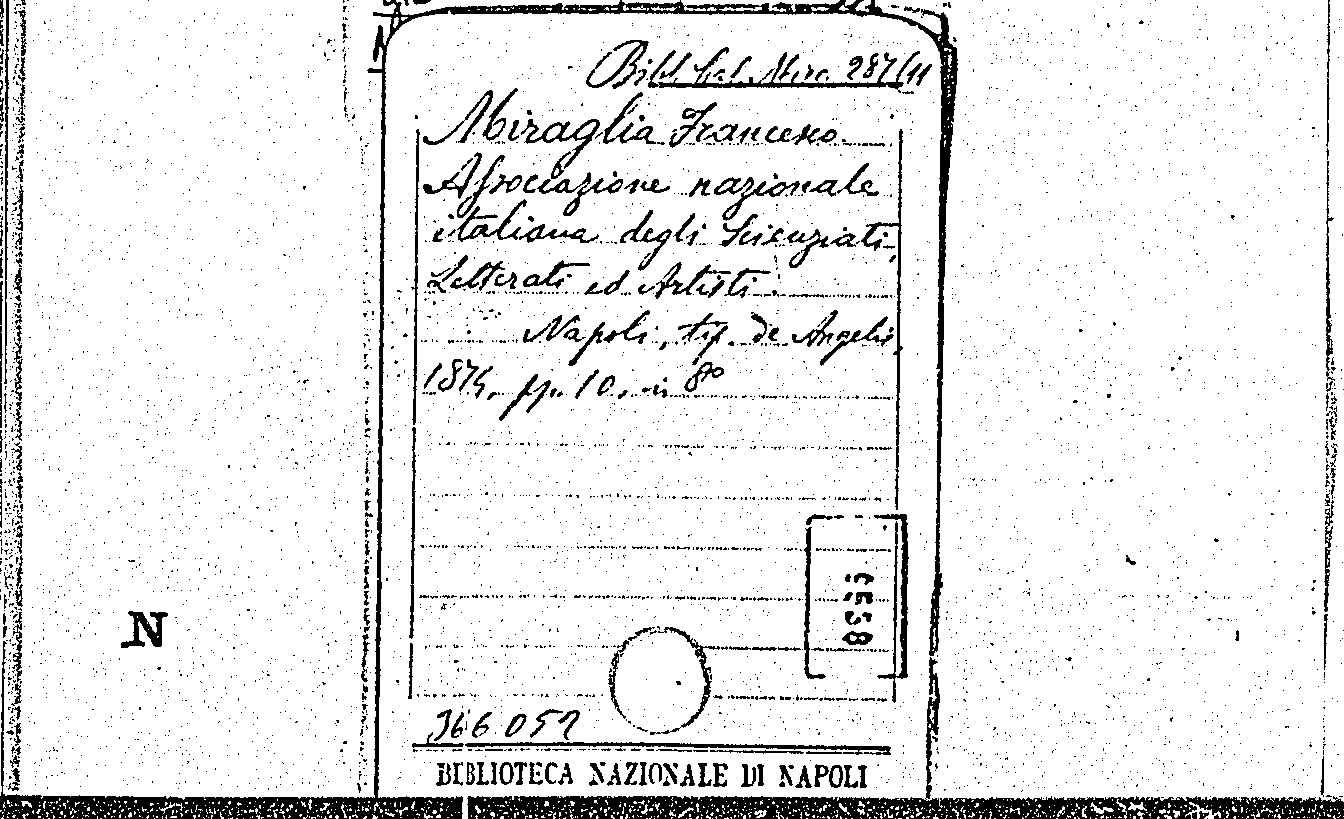 Bibl. Cal. Misc. 287/11
Miraglia Francesco.
Associazione nazionale
italiana degli Scienziati,
Letterati ed Artisti.
Napoli, tip. de Angelis,
1874, pp. 10. in 8º
N
366051
BIBLIOTECA NAZIONALE DI NAPOLI